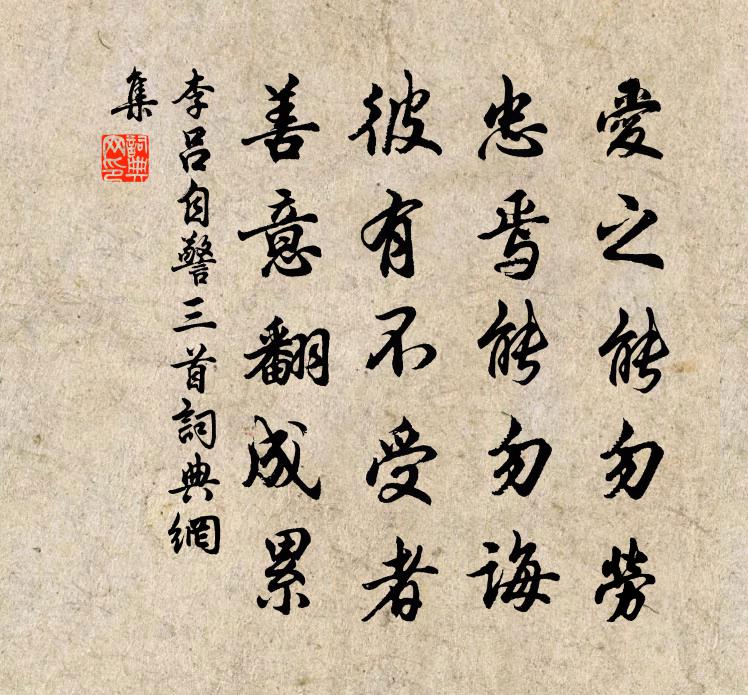 愛之能勿勞
忠焉能勿誨
彼有不受者
善意翻成累
李呂自警三首詞典網
集
詞典
网印